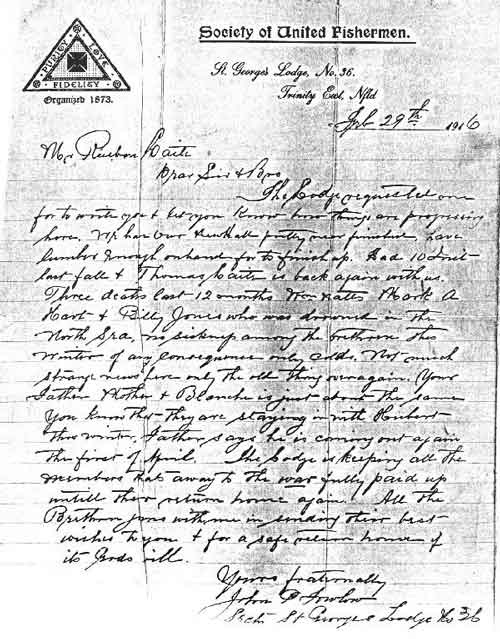 Society of United Fishermen.
PURITY LOVE
FIDELITY
Organized 1873.
St. George's Lodge, No. 36.
Trinity East, Nfld
Feb 29th 1916
Mr Reuben
Dear Sir & Bro
The Lodge requested me
for to write you & let you know how things are progressing
here. We have our New Hall pretty near finished have
lumber enough on hand for to finish up. Had 10
last fall & Thomas is back again with us.
Three deaths last 12 months Wm Mark A
& Billy Jones who was drowned in the
North Sea, no sickness among the brethren this
winter of any consequence only colds. Not much
strange news here only the old thing over again. Your
Father Mother & Blanche is just about the same
You know that they are staying in with Hubert
this winter. Father says he is coming out again
the first of April. The Lodge is keeping all the
members that away to the war fully paid up
untill their return home again. All the
Brethren joins with me in sending their best
wishes to you & for a safe return home if
its Gods will.
Yours fraternally
John
Secty St Georges Lodge No 36